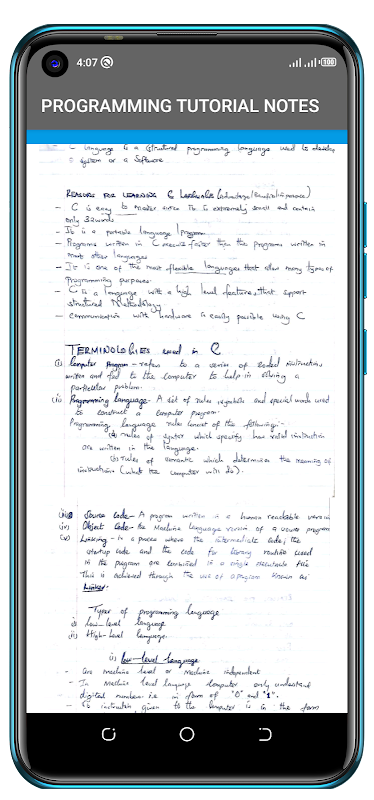 4:07
100
PROGRAMMING TUTORIAL NOTES
C language is a structured programming language used to develop
a system or a software
REASONS FOR LEARNING C LANGUAGE
- C is easy to master since its is extremely small and contain
only 32 words
- It is a portable language / program
- Programs written in C execute faster than the programs written in
most other languages
- It is one of the most flexible languages that allow many types of
Programming purposes
- C is a language with a high level feature, that support
structured methodology
- communication with hardware is easily possible using C
TERMINOLOGIES used in C
(i) Computer Program - refers to a series of coded instructions
written and fed to the computer to help in solving a
particular problem.
(ii) Programming Language - A set of rules, symbols and special words used
to construct a computer program.
Programming language rules consist of the following:-
(a) rules of syntax which specify how valid instruction
are written in the language.
(b) rules of semantic which determine the meaning of
instruction (what the computer will do).
(iii) Source code - A program written in a human readable version
(iv) Object code - the Machine language version of a source program
(v) Linking - Is a process where the intermediate code, the
startup code and the code for library routine used
in the program are combined in a single executable file
This is achieved through the use of a program known as
Linker.
Types of programming language
i) Low-level language
ii) High-level language
i) Low-level Language
- Are machine level or machine independent
- In Machine level language Computer only understand
digital numbers i.e in form of "0" and "1".
- instruction given to the computer is in the form